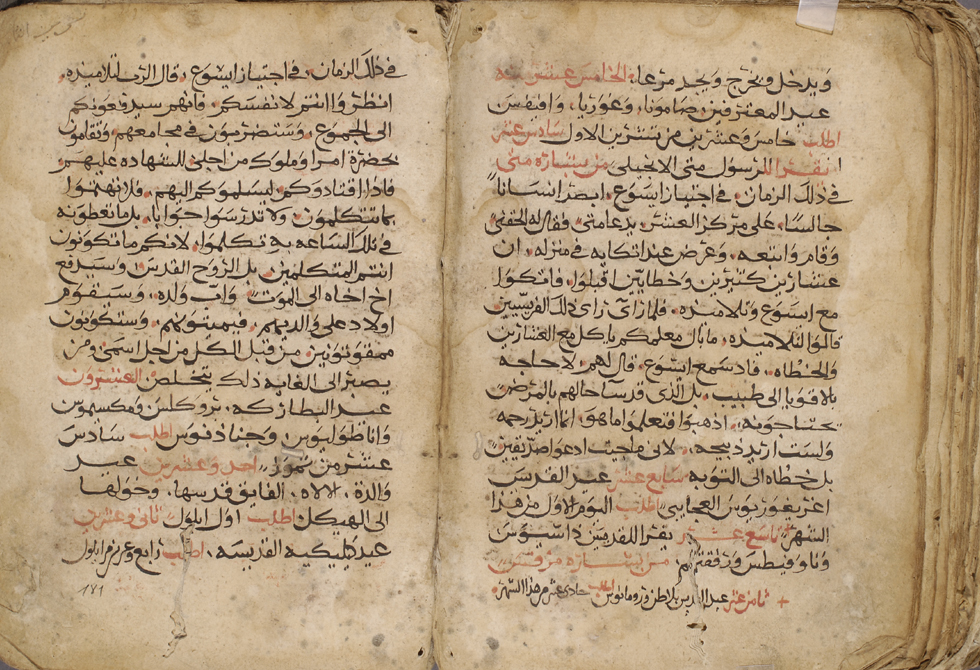 ويدخل ويخرج ويجد مرعا. الخامس عشر منه
عيد المعترفين صامونا، وغوريا، وافيفس
اطلب خامس وعشرين من تشرين الاول سادس عشر
يقرا للرسول متى الانجيلي من بشارة متى
في ذلك الزمان، في اجتياز ايسوع، ابصر انسانا
جالسا، على مركز العشر، يدعا متى فقال له الحقني
وقام واتبعه، وعرض عند اتكايه في منزله، ان
عشارين كثيرين وخطايين اقبلوا، فاتكوا
مع ايسوع وتلاميذه. فلما راى ذلك الفريسيين
قالوا لتلاميذه، ما بال معلمكم ياكل مع العشارين
والخطاه، فاذ سمع ايسوع، قال لهم لا حاجه
بالاقويا الى طبيب، بل الذي قد سا حالهم بالمرض
يحتاجونه. اذهبوا فتعلموا ما هو، انما اريد رحمه
ولست اريد ذبيحه، لاني ما جيت ادعوا صديقين
بل خطاه الى التوبه سابع عشر عيد القديس
اغريغوريوس العجايبي اطلب اليوم الاول من هذا
الشهر تاسع عشر يقرا للقديسين
ورفقتهم من بشاره مرقس
ثامن عشر عيد بلاطن ورومانوس اطلب حادي عشر من هذا الشهر
في ذلك الزمان، في اجتياز ايسوع، قال الرب لتلاميذه،
انظروا انتم لانفسكم، فانهم سيدفعونكم
الى الجموع، وستضربون في مجامعهم، وتقامون
بحضرة امرا وملوك من اجلي، للشهاده عليهم
فاذا اقتادوكم ليسلموكم اليهم، فلا تهتموا
بما تتكلمون، ولا تدرسوا جوابا، بل ما تعطونه
في تلك الساعه به تكلموا، لانكم ما تكونون
انتم المتكلمين، بل الروح القدس، وسيدفع
اخ اخاه الى الموت، واب ولده، وسيقوم
اولاد على والديهم، فيميتونهم، وستكونون
ممقوتين، من قبل الكل من اجل اسمي ومن
يصبر الى الغايه ذلك يتخلص العشرون
عيد البطاركه، بروكلس، ومكسيموس
واناطوليوس، وجناذيوس اطلب سادس
عشر من تموز احد وعشرين عيد
والدة، الالاه، الفايق قدسها، ودخولها
الى الهيكل اطلب اول ايلول ثاني وعشرين
عيد كيليكيه القديسه، اطلب رابع وعشرين من ايلول
١٨١